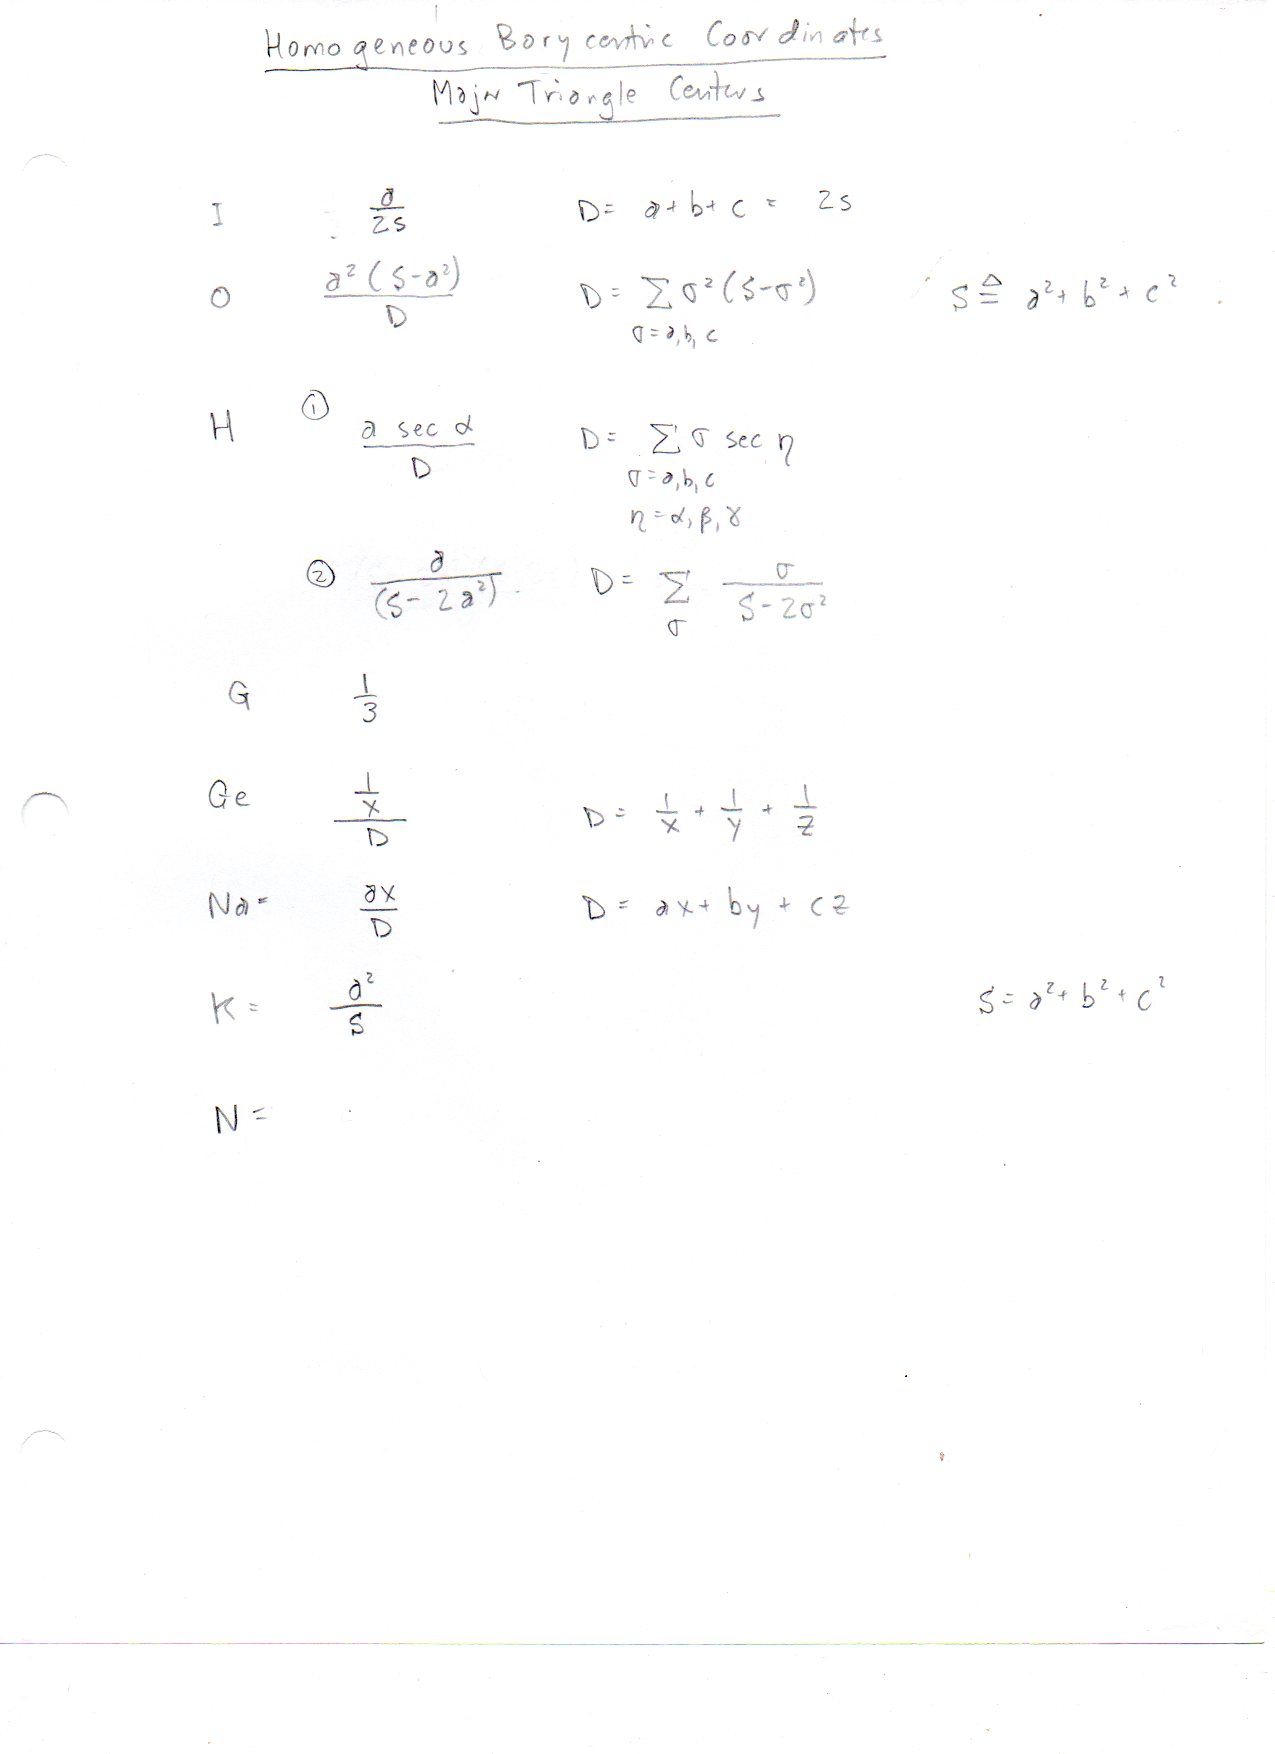 Homogeneous Barycentric Coordinates
Major Triangle Centers
I a/2s D = a + b + c = 2s
O a²(S-a²)/D D = Σ σ²(S-σ²) S ≜ a² + b² + c²
σ = a, b, c
H ① a sec α/D D = Σ σ sec η
σ = a, b, c
η = α, β, γ
② a/(S - 2a²) D = Σ σ/(S - 2σ²)
σ
G 1/3
Ge (1/x)/D D = 1/x + 1/y + 1/z
Na = ax/D D = ax + by + cz
K = a²/S S = a² + b² + c²
N =